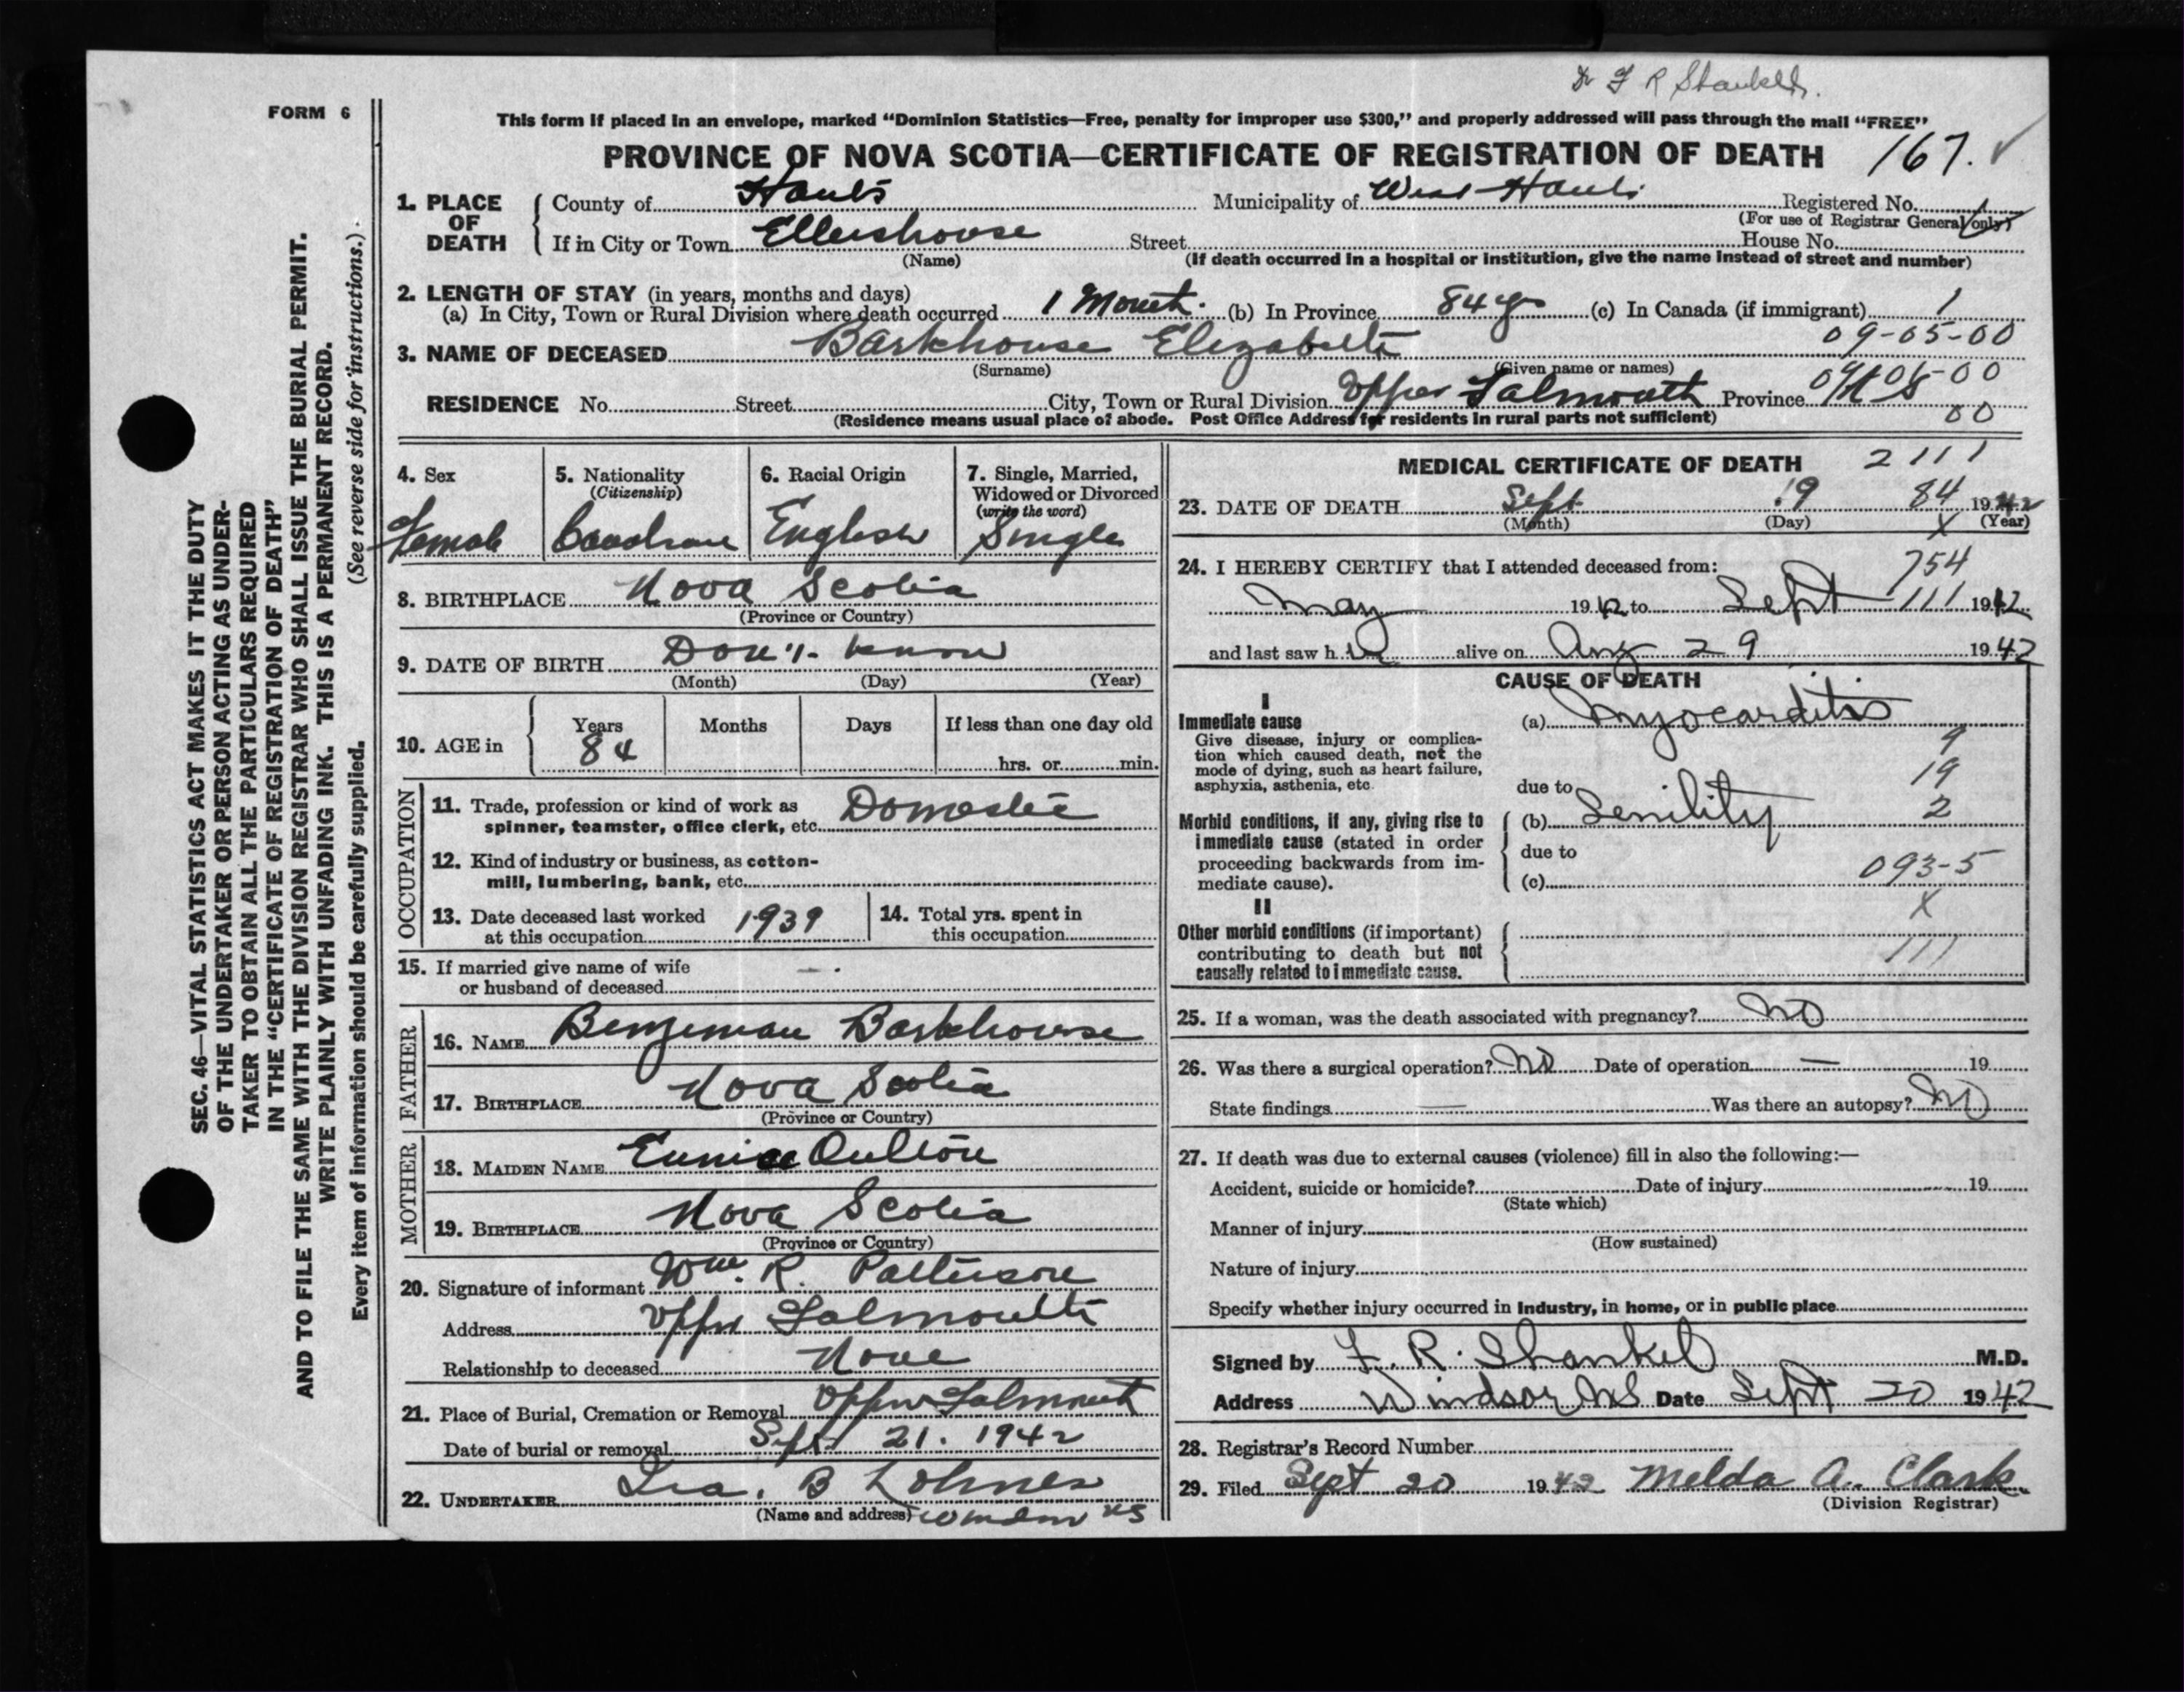 Dr F R Shankel.
FORM 6
This form if placed in an envelope, marked "Dominion Statistics—Free, penalty for improper use $300," and properly addressed will pass through the mail "FREE"
PROVINCE OF NOVA SCOTIA—CERTIFICATE OF REGISTRATION OF DEATH 167.
1. PLACE OF DEATH { County of Hants Municipality of West Hants Registered No.
(For use of Registrar General only)
If in City or Town Ellershouse Street House No.
(Name) (If death occurred in a hospital or institution, give the name instead of street and number)
2. LENGTH OF STAY (in years, months and days)
(a) In City, Town or Rural Division where death occurred 1 Month. (b) In Province 84 yrs (c) In Canada (if immigrant) 1
09-05-00
3. NAME OF DECEASED Barkhouse Elizabeth
(Surname) (Given name or names)
RESIDENCE No. Street City, Town or Rural Division Upper Falmouth Province N S
00
(Residence means usual place of abode. Post Office Address for residents in rural parts not sufficient)
4. Sex
Female
5. Nationality
(Citizenship)
Canadian
6. Racial Origin
English
7. Single, Married,
Widowed or Divorced
(write the word)
Single
8. BIRTHPLACE Nova Scotia
(Province or Country)
9. DATE OF BIRTH Don't know
(Month) (Day) (Year)
10. AGE in { Years Months Days If less than one day old
84 hrs. or min.
OCCUPATION
11. Trade, profession or kind of work as
spinner, teamster, office clerk, etc. Domestic
12. Kind of industry or business, as cotton-
mill, lumbering, bank, etc.
13. Date deceased last worked
at this occupation 1939
14. Total yrs. spent in
this occupation
15. If married give name of wife
or husband of deceased —
FATHER
16. NAME Benjeman Barkhouse
17. BIRTHPLACE Nova Scotia
(Province or Country)
MOTHER
18. MAIDEN NAME Eunice Oulton
19. BIRTHPLACE Nova Scotia
(Province or Country)
20. Signature of informant Wm. R. Patterson
Address Upper Falmouth
Relationship to deceased None
21. Place of Burial, Cremation or Removal Upper Falmouth
Date of burial or removal Sept 21. 1942
22. UNDERTAKER Ira. B Lohnes
(Name and address) Windsor NS
MEDICAL CERTIFICATE OF DEATH 2111
23. DATE OF DEATH Sept 19 84 1942
(Month) (Day) X (Year)
24. I HEREBY CERTIFY that I attended deceased from: 754
May 1942 to Sept 111 1942
and last saw h er alive on Aug 29 1942
CAUSE OF DEATH
I
Immediate cause
Give disease, injury or complica-
tion which caused death, not the
mode of dying, such as heart failure,
asphyxia, asthenia, etc.
(a) Myocarditis
9
19
due to
Morbid conditions, if any, giving rise to
immediate cause (stated in order
proceeding backwards from im-
mediate cause).
(b) Senility 2
due to
(c) 093-5
II X
Other morbid conditions (if important)
contributing to death but not
causally related to immediate cause.
111
25. If a woman, was the death associated with pregnancy? No
26. Was there a surgical operation? No Date of operation — 19
State findings — Was there an autopsy? No
27. If death was due to external causes (violence) fill in also the following:—
Accident, suicide or homicide? Date of injury 19
(State which)
Manner of injury
(How sustained)
Nature of injury
Specify whether injury occurred in Industry, in home, or in public place
Signed by F. R. Shankel M.D.
Address Windsor NS Date Sept 20 1942
28. Registrar's Record Number
29. Filed Sept 20 1942 Melda A. Clark.
(Division Registrar)
SEC. 46—VITAL STATISTICS ACT MAKES IT THE DUTY
OF THE UNDERTAKER OR PERSON ACTING AS UNDER-
TAKER TO OBTAIN ALL THE PARTICULARS REQUIRED
IN THE "CERTIFICATE OF REGISTRATION OF DEATH"
AND TO FILE THE SAME WITH THE DIVISION REGISTRAR WHO SHALL ISSUE THE BURIAL PERMIT.
WRITE PLAINLY WITH UNFADING INK. THIS IS A PERMANENT RECORD.
Every item of information should be carefully supplied. (See reverse side for instructions.)